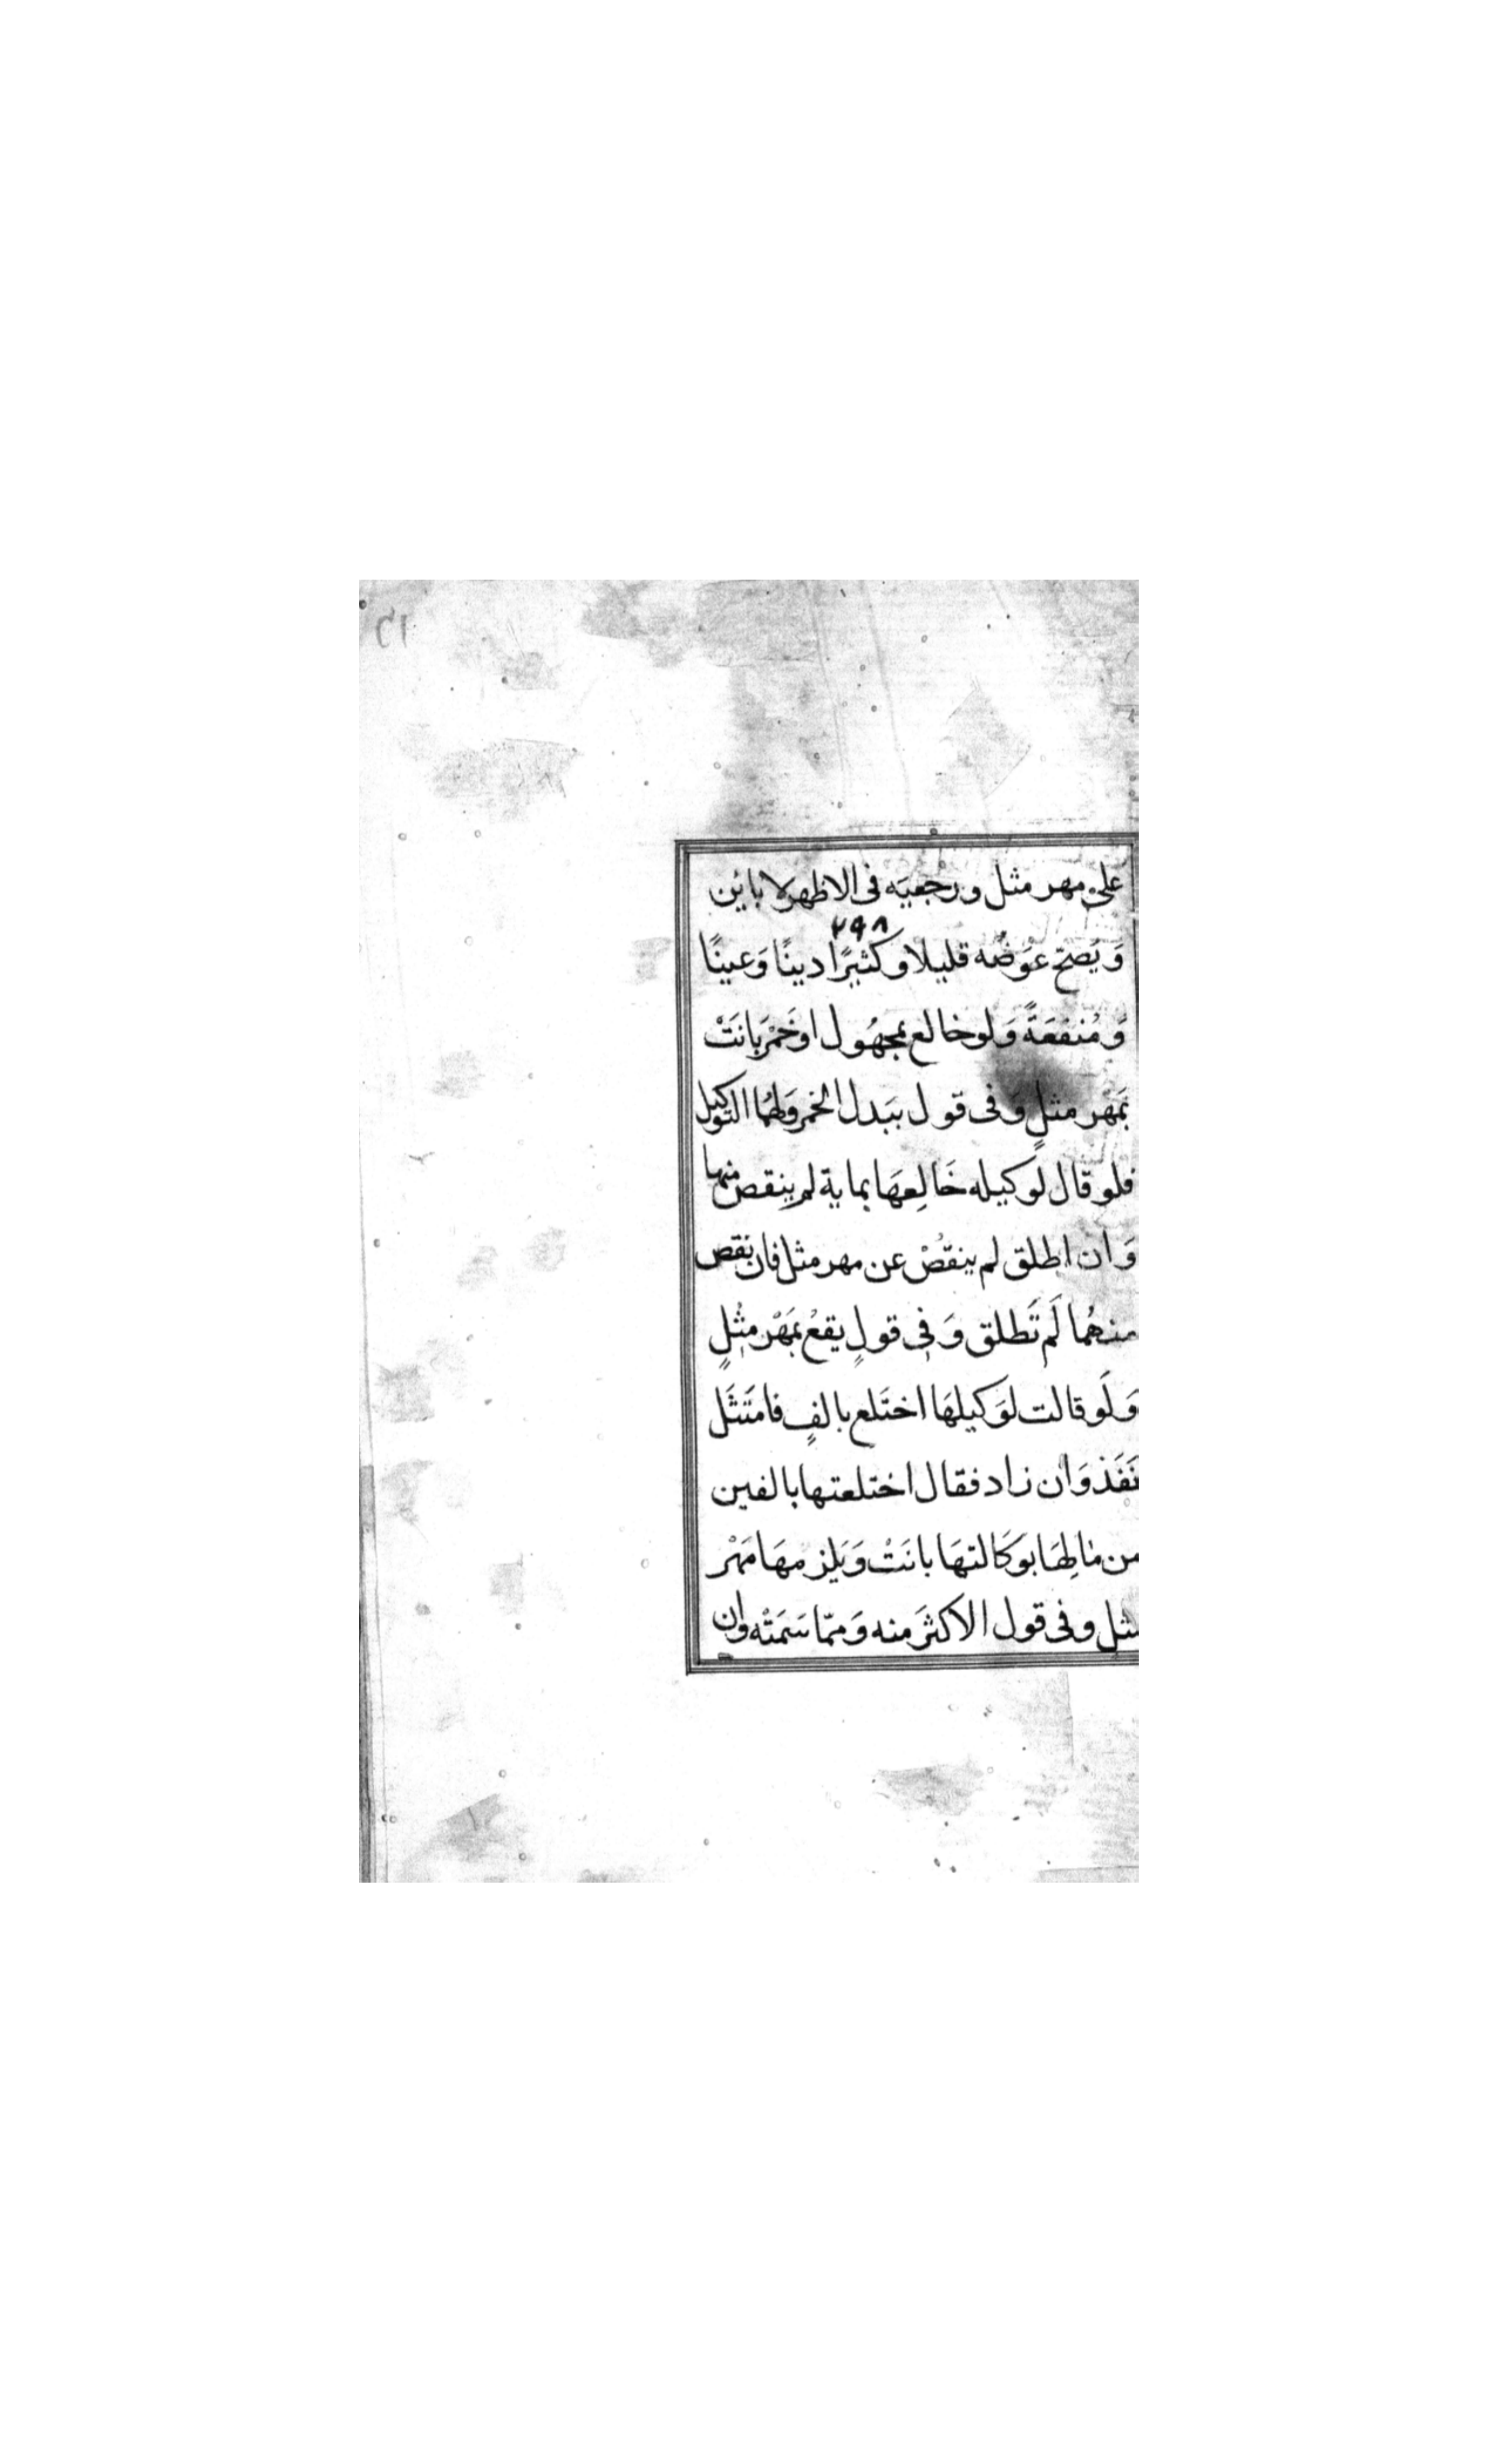 على مهر مثل ورجعيَه فى الاظهر لا باين
٢٩٨
وَيَصحّ عوَضُه قليلا وكثيرًا دينًا وَعينًا
وَمُنفعَةً وَلو خالع بمجهُول او خَمْر بَانَتْ
بمَهْر مثلٍ وَفى قول ببَدل الخمر وَلهُما التوكيل
فلو قال لوكيله خَالِعهَا بماية لم ينقص منها
وَان اطلق لم ينقُصْ عن مهر مثل فان نقص
منهُما لَم تَطلق وَفِى قولٍ يقعُ بمَهْر مثْلٍ
وَلَو قالت لوَكيلهَا اختَلع بالفٍ فامتَثَل
نَفَذ وَان زاد فقال اختلعتها بالفين
من مَالِهَا بوَكَالتهَا بانَتْ وَيَلزمهَا مَهْر
مثل وفى قول الاكثرَ منه وَممّا سَمَتْه وان